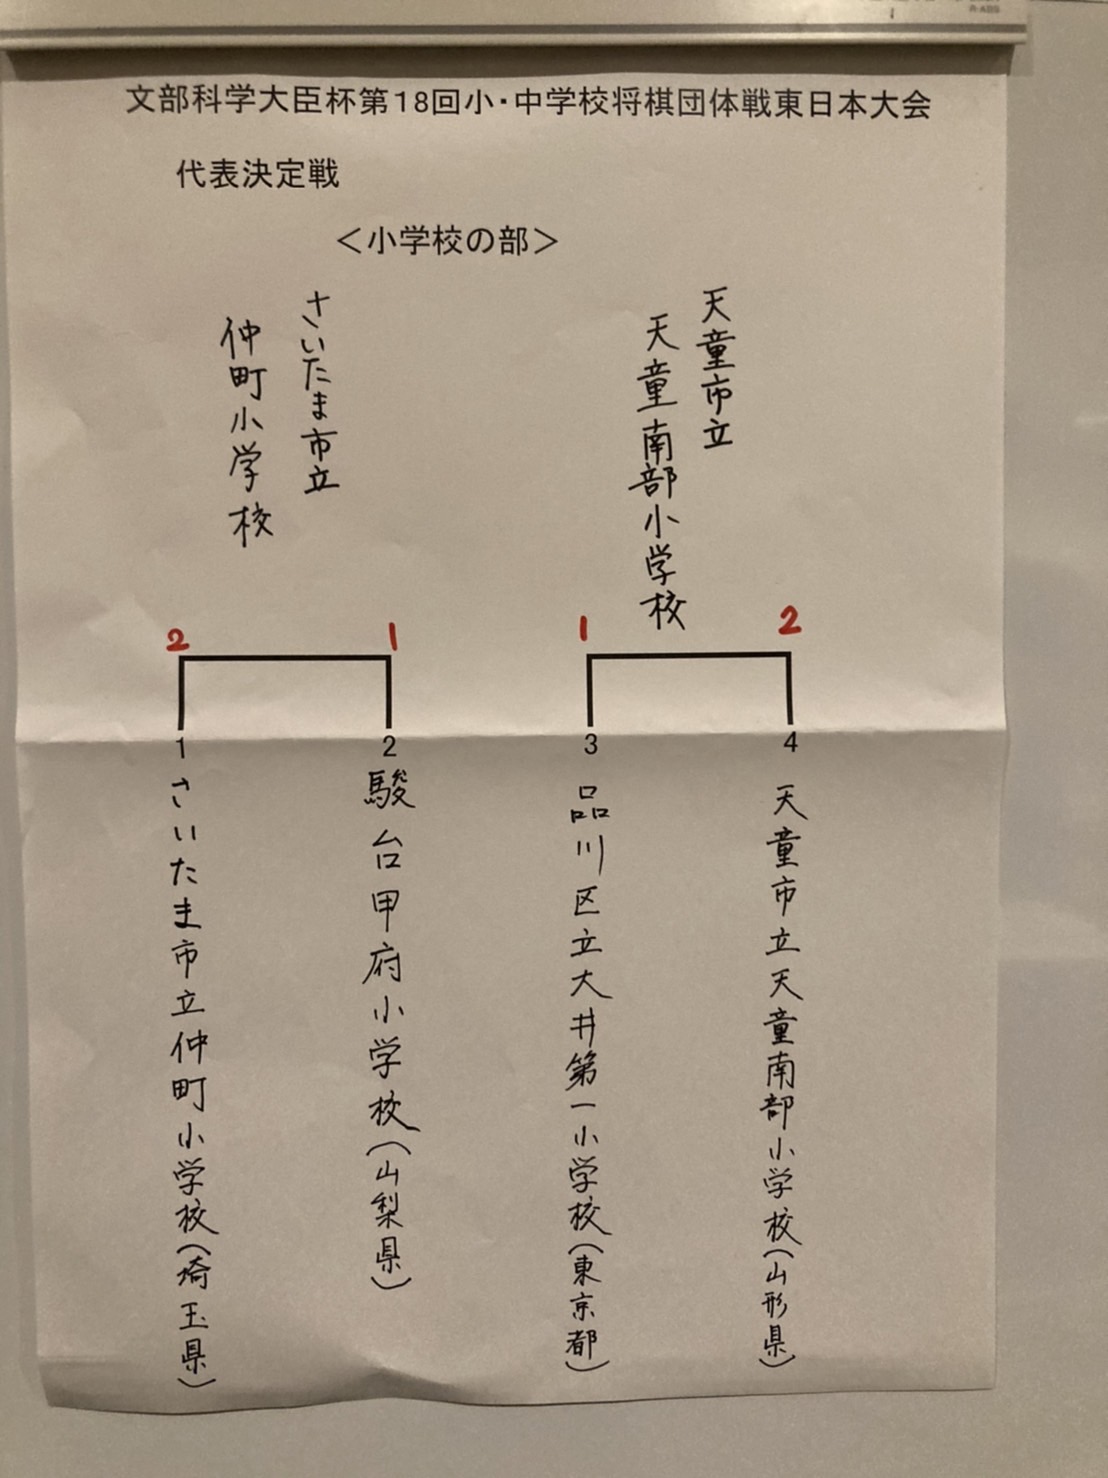 文部科学大臣杯第18回小・中学校将棋団体戦東日本大会
代表決定戦
＜小学校の部＞
さいたま市立
仲町小学校
天童市立
天童南部小学校
2
1
1
2
1
さいたま市立仲町小学校(埼玉県)
2
駿台甲府小学校(山梨県)
3
品川区立大井第一小学校(東京都)
4
天童市立天童南部小学校(山形県)